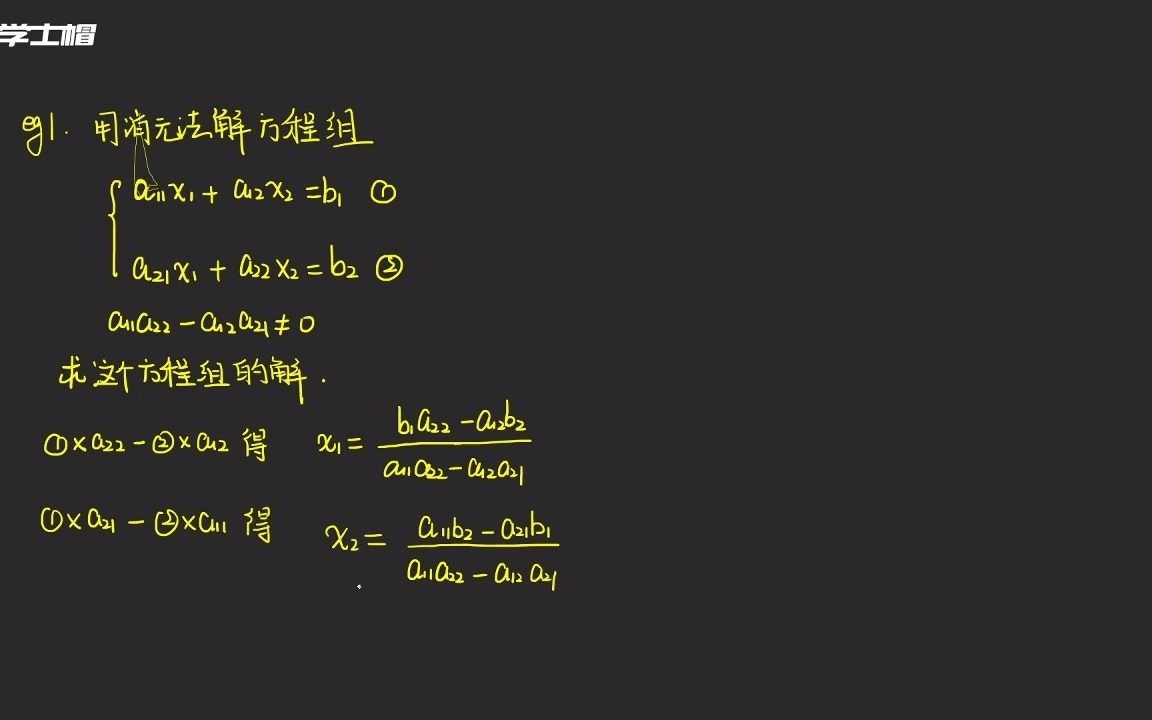 学士帽
eg1. 用消元法解方程组
{ a₁₁x₁ + a₁₂x₂ = b₁ ①
a₂₁x₁ + a₂₂x₂ = b₂ ②
a₁₁a₂₂ - a₁₂a₂₁ ≠ 0
求这个方程组的解.
①×a₂₂ - ②×a₁₂ 得 x₁ = (b₁a₂₂ - a₁₂b₂) / (a₁₁a₂₂ - a₁₂a₂₁)
①×a₂₁ - ②×a₁₁ 得 x₂ = (a₁₁b₂ - a₂₁b₁) / (a₁₁a₂₂ - a₁₂a₂₁)